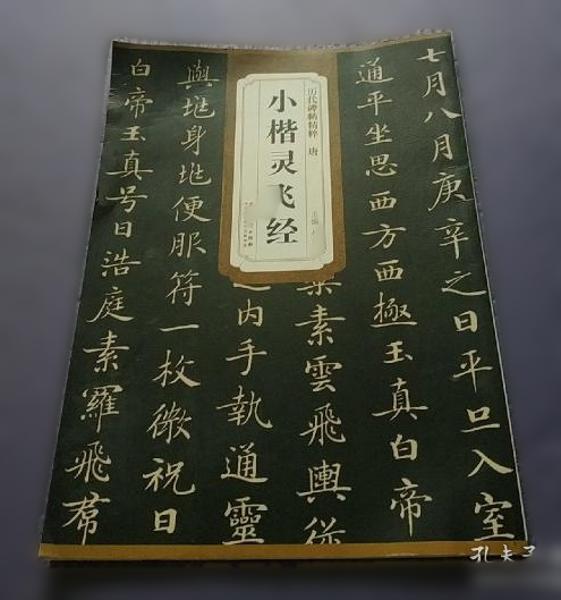 历代碑帖精粹 唐
小楷灵飞经
主编
七月八月庚辛之日平旦入室
通平坐思西方西極玉真白帝
素雲飛輿從
内手執通靈
與𡉏身𡉏便服符一枚微祝日
白帝玉真号曰浩庭素羅飛帬
孔夫子